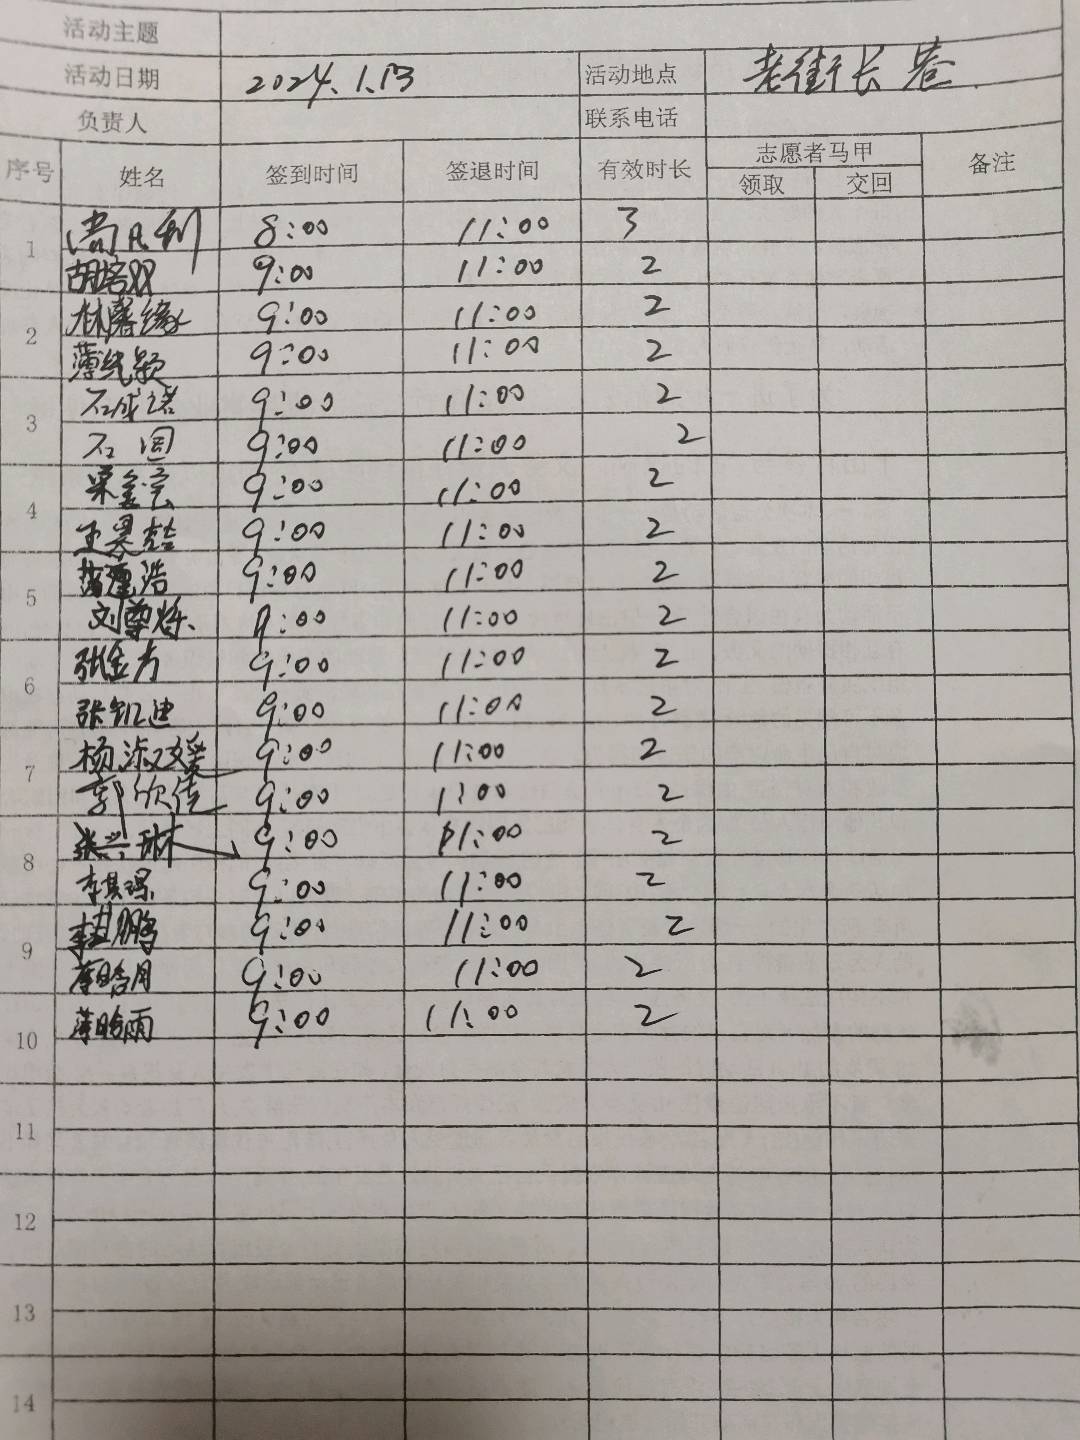 活动主题
活动日期 2024.1.13 活动地点 老街长巷
负责人 联系电话
序号 姓名 签到时间 签退时间 有效时长 志愿者马甲 备注
领取 交回
1 尚凡利 8:00 11:00 3
胡培双 9:00 11:00 2
2 林馨缘 9:00 11:00 2
薄纯颖 9:00 11:00 2
3 石成诺 9:00 11:00 2
石圆 9:00 11:00 2
4 梁鑫宏 9:00 11:00 2
王昊喆 9:00 11:00 2
5 浩 9:00 11:00 2
刘尊烁 9:00 11:00 2
6 张金方 9:00 11:00 2
张凯迪 9:00 11:00 2
7 杨淑媛 9:00 11:00 2
郭欣佳 9:00 11:00 2
8 张兴琳 9:00 11:00 2
李其璟 9:00 11:00 2
9 李鹏 9:00 11:00 2
晗月 9:00 11:00 2
10 薄晗雨 9:00 11:00 2
11
12
13
14